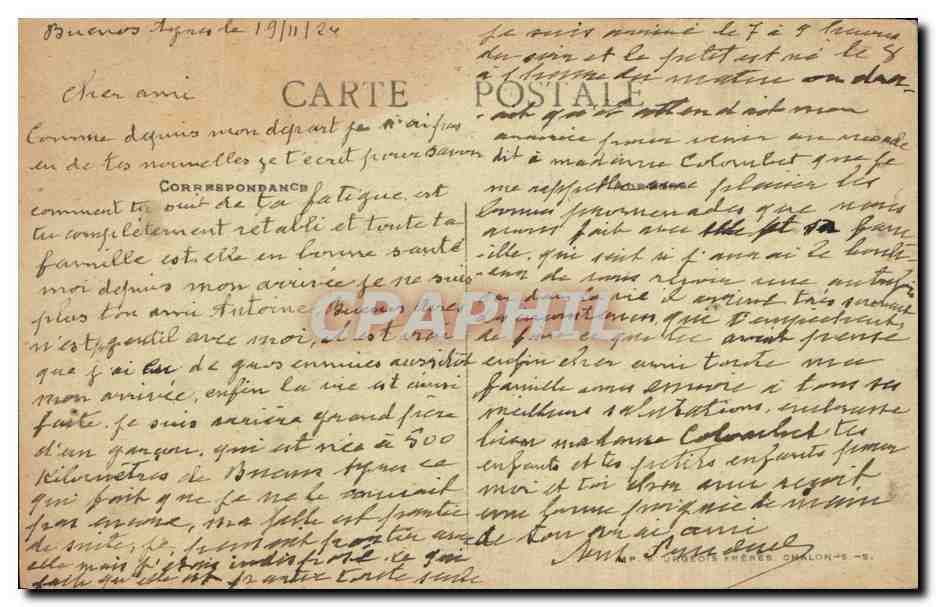 Buenos Ayres le 19/11/24
Cher ami
CARTE POSTALE
Comme depuis mon départ je n'ai pas
eu de tes nouvelles je t'ecrit pour savoir
CORRESPONDANCE
comment tu suit de ta fatigue, est
tu complétement rétabli et toute ta
famille est elle en bonne santé
moi depuis mon arrivée je ne suis
plus ton ami Antoine, Buenos Ayres
n'est gentil avec moi, il est vrai
que j'ai eu de gros ennuies aussitôt
mon arrivée, enfin la vie est ainsi
faite. je suis arrière grand père
d'un garçon, qui est née à 500
kilomètres de Buenos Ayres ce
qui fait que je ne le connait
pas encore, ma fille est partie
de suite, je partir avec
elle mais j'etais indisposé ce qui
falle qu'elle est partir toute seule
je suis arrivé le 7 à 9 heures
du soir et le petit est né le 8
a heure du matin on
qu'il attendait mon
arrivée pour venir au monde
dit à madame Colombet que je
me rappelle avec plaisir les
bonnes promenades que nous
avons fait avec elle et sa fam
-ille, qui sait si j'aurai le bonh-
-eur de vous revoir une autre fois
dans la vie il arrive très souvent
que
de faire ce que l'on avait pensé
enfin cher ami toute ma
famille vous envoie à tous ses
meilleurs salutations, embrasse
bien madame Colombet tes
enfants et tes petits enfants pour
moi et toi cher ami reçoit
une bonne poignée de main
de ton vrai ami
IMP. BOURGEOIS FRÈRES, CHALON-S.-S.
CPAPHIL